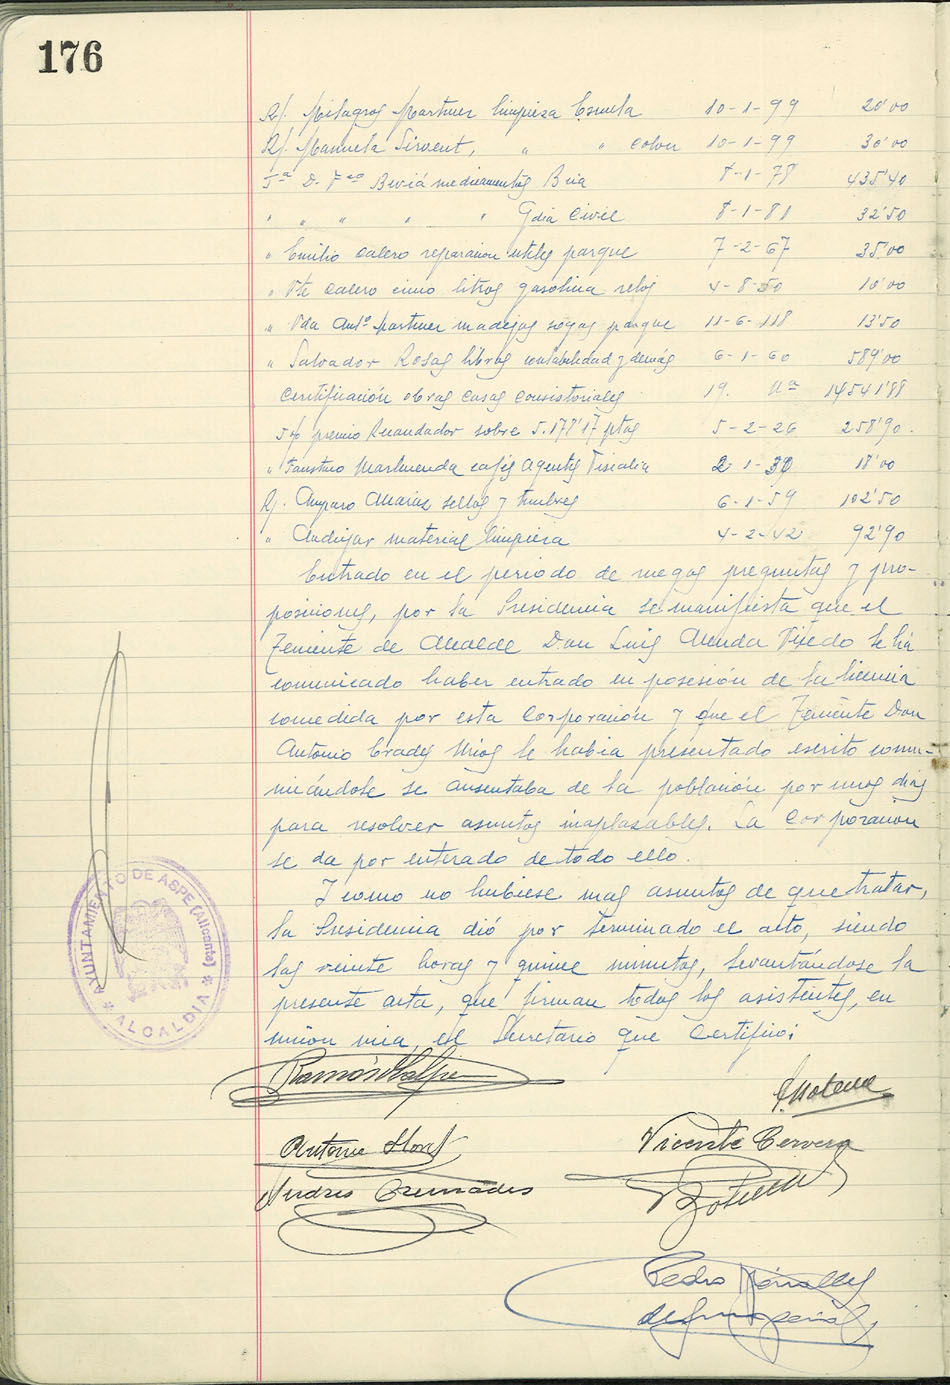 176
Rj. Milagros Martinez limpieza Escuela 10-1-99 20'00
Rj. Manuela Sirvent, " " colon 10-1-99 30'00
Fª D. Fco Beviá medicamentos Bcia 8-1-78 435'40
" " " " " Gdia Civil 8-1-81 32'50
" Emilio Calero reparacion utiles parque 7-2-67 35'00
" Vte Calero cinco litros gasolina reloj 4-8-50 10'00
" Vda Antº Martinez madejas sogas parque 11-6-118 13'50
" Salvador Rosas libros contabilidad y demás 6-1-60 589'00
Certificación obras casas consistoriales 19. Uª 14541'88
5% premio Recaudador sobre 5.178'17 ptas 5-2-26 258'90.
" Faustino cafés Agentes Fiscalia 2-1-30 18'00
Rj. Amparo sellos y timbres 6-1-59 102'50
" Andujar material limpieza 4-2-42 92'90
Entrado en el periodo de ruegos preguntas y pro-
posiciones, por la Presidencia se manifiesta que el
Teniente de Alcalde Don Luis le ha
comunicado haber entrado en posesión de la licencia
concedida por esta Corporación y que el Teniente Don
Antonio le habia presentado escrito comu-
nicándole se ausentaba de la población por unos dias
para resolver asuntos inaplazables. La Corporación
se da por enterado de todo ello.
Y como no hubiese mas asuntos de que tratar,
la Presidencia dió por terminado el acto, siendo
las veinte horas y quince minutos, levantándose la
presente acta, que firman todos los asistentes, en
unión mia, el Secretario que Certifico:
AYUNTAMIENTO DE ASPE (Alicante)
* ALCALDIA *
Ramón
Antonio
Vicente Cervera
Andres Cremades
Pedro